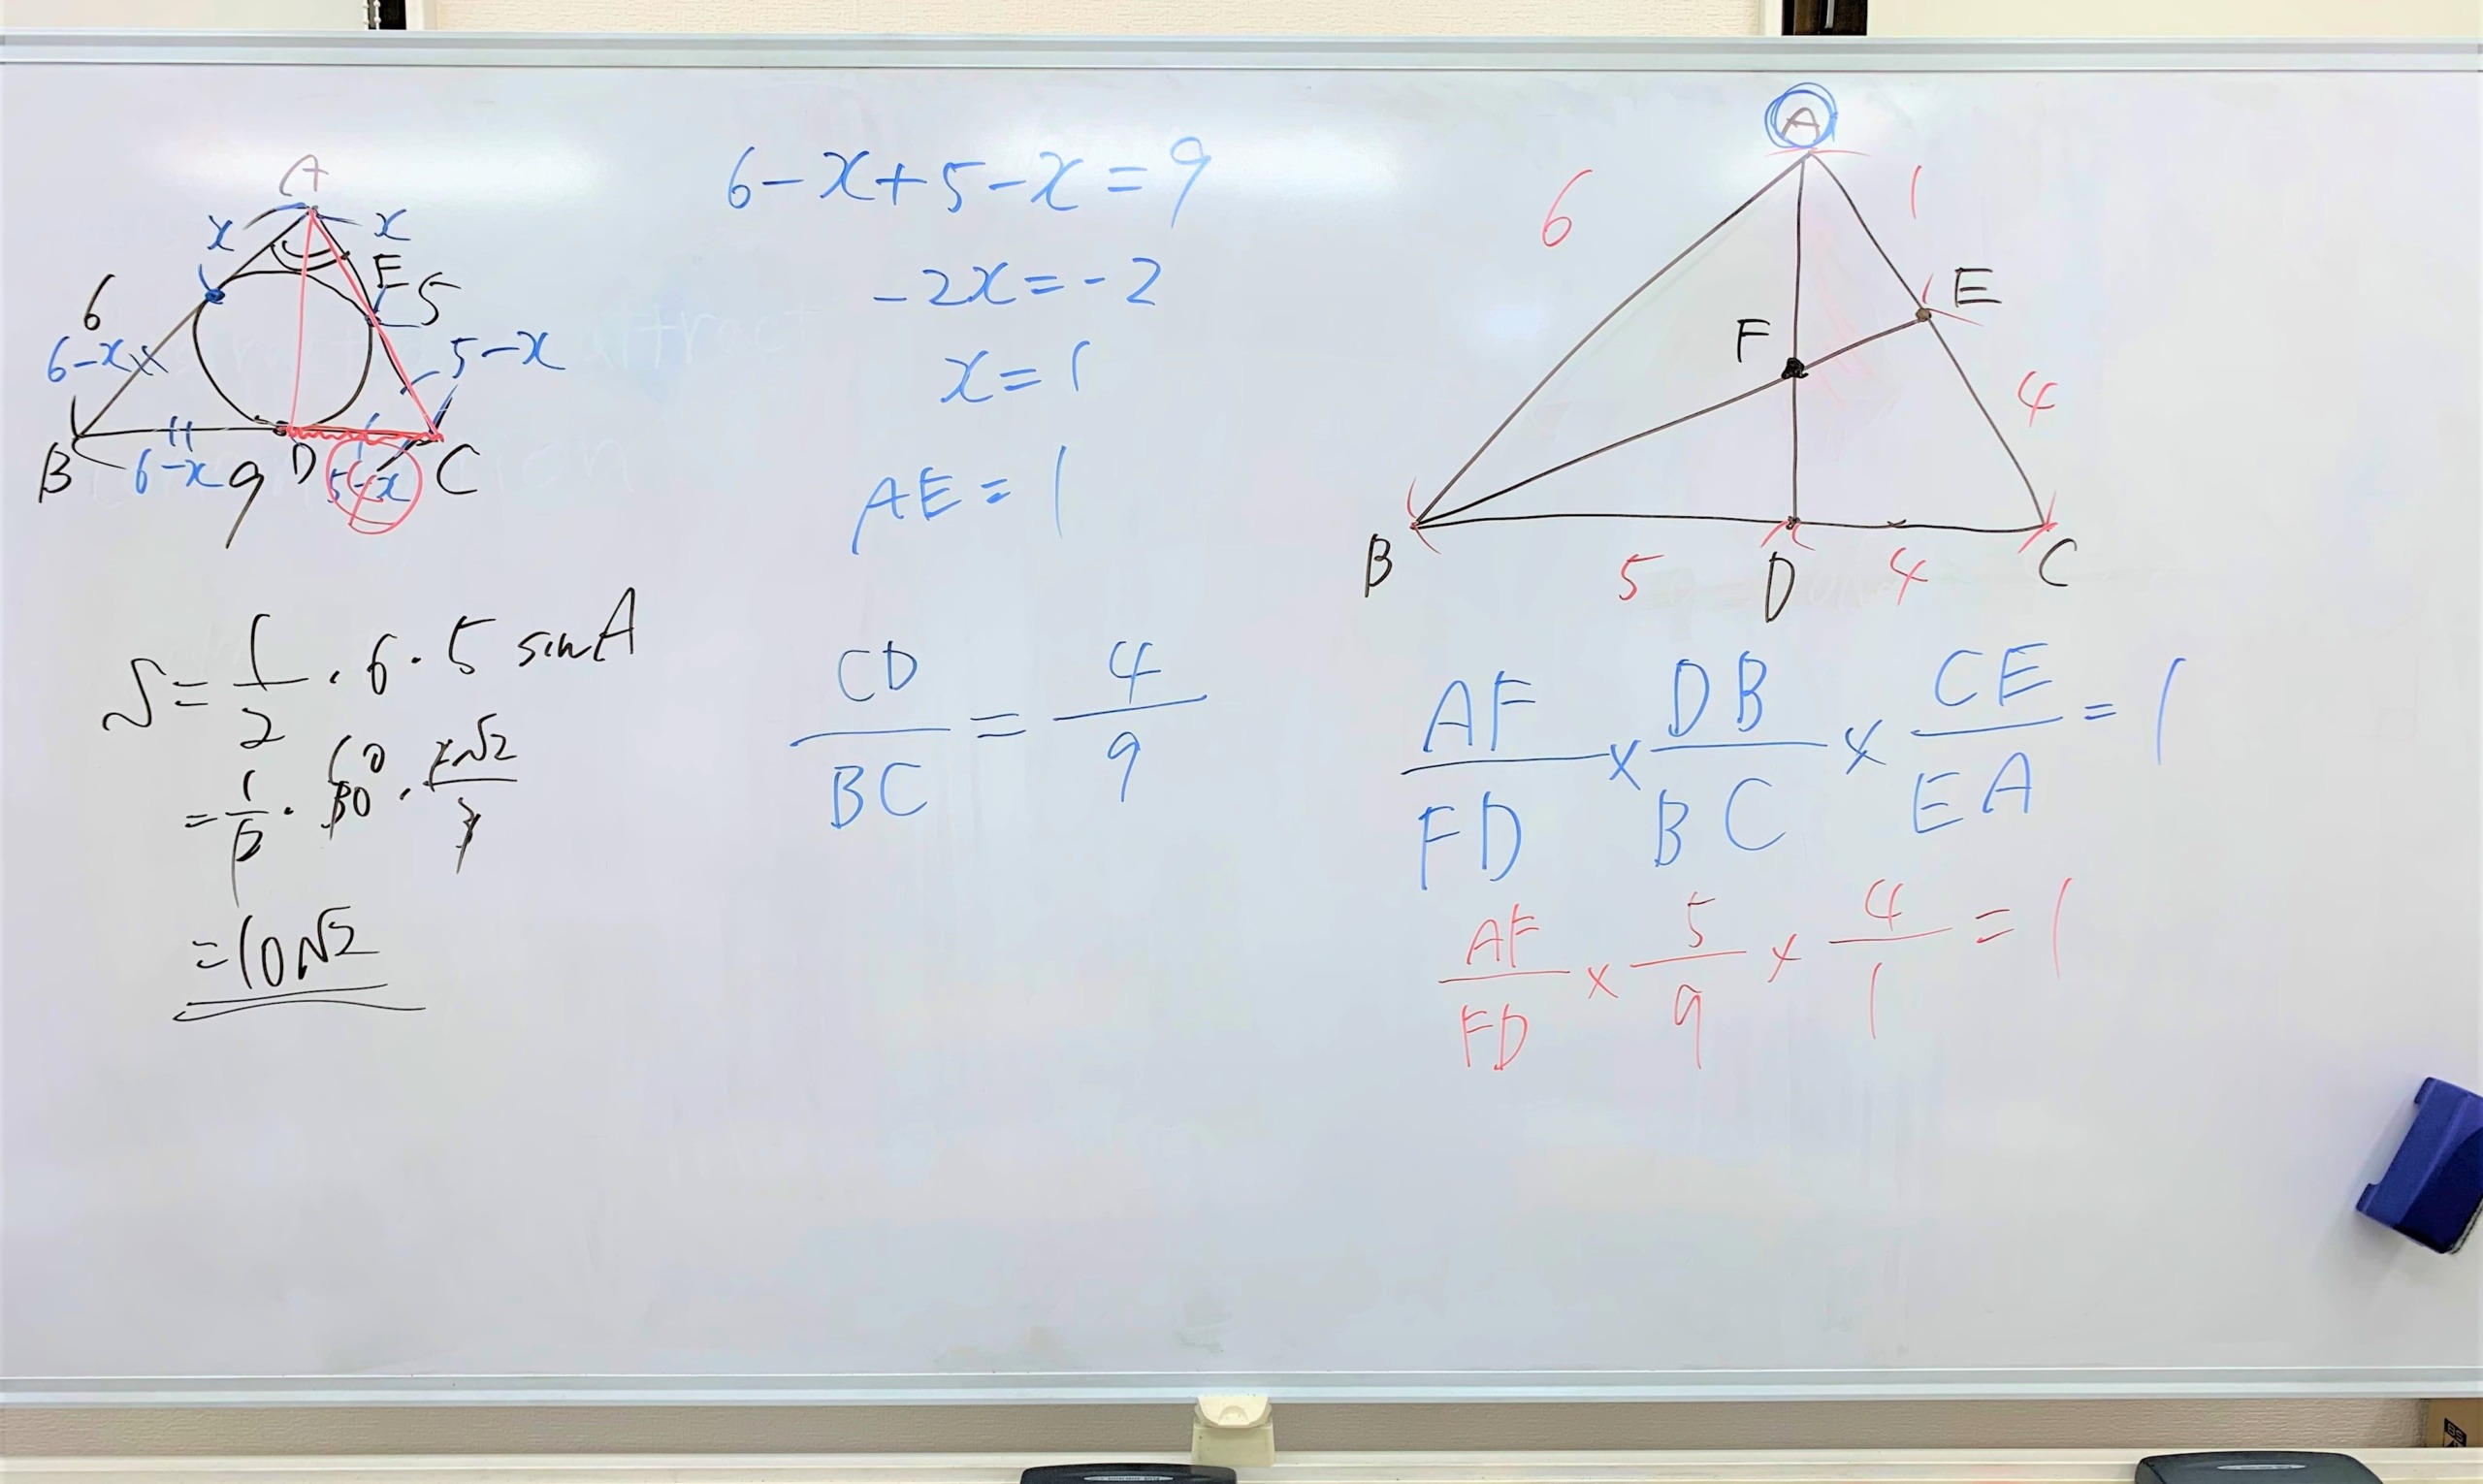 A
x x
6 E 5
6-x 5-x
B 6-x 9 D 5-x C
S = 1/2 · 6 · 5 sinA
= 1/2 · 30 10 · 2√2/3
= 10√2
6-x+5-x=9
-2x=-2
x=1
AE=1
CD/BC = 4/9
A
6 1
E
F
4
B 5 D 4 C
AF/FD × DB/BC × CE/EA = 1
AF/FD × 5/9 × 4/1 = 1